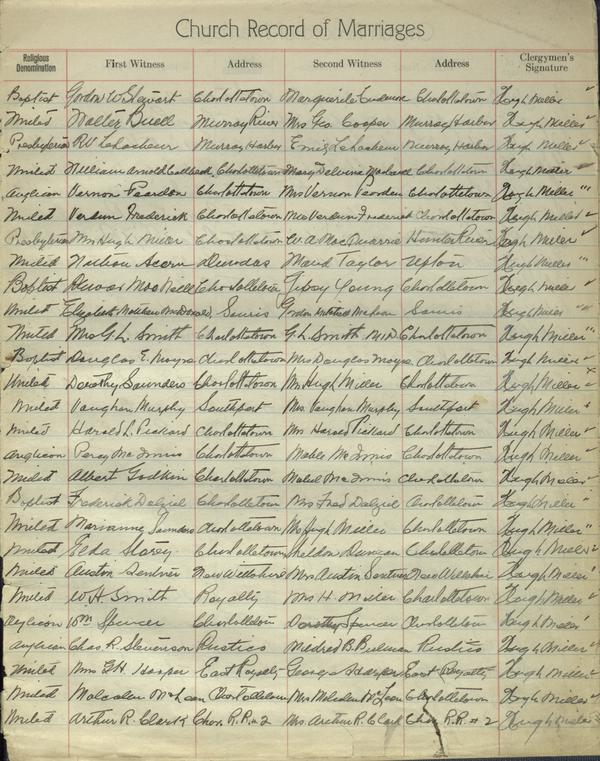 Church Record of Marriages
Religious Denomination First Witness Address Second Witness Address Clergymen's Signature
Baptist Gordon W Stewart Charlottetown Marguerite Charlottetown Hugh Miller "
United Walter Buell Murray River Mrs Geo. Cooper Murray Harbor Hugh Miller "
Presbyterian Murray Harbor Murray Harbor Hugh Miller "
United William Arnold Charlottetown Mary Charlottetown Hugh Miller "
Anglican Vernon Charlottetown Mrs Vernon Charlottetown Hugh Miller "
United Verdun Frederick Charlottetown Mrs Verdun Frederick Charlottetown Hugh Miller "
Presbyterian Mrs Hugh Miller Charlottetown W. A MacQuarrie Hunter River Hugh Miller "
United Acorn Dundas Maud Taylor Upton Hugh Miller "
Baptist MacNeill Charlottetown Young Charlottetown Hugh Miller "
United Elizabeth MacDonald Souris Gordon Souris Hugh Miller "
United Mrs G. L. Smith Charlottetown G. L. Smith M.D. Charlottetown Hugh Miller "
Baptist Douglas E. Moyse Charlottetown Mrs Douglas Moyse Charlottetown Hugh Miller "
United Dorothy Saunders Charlottetown Mrs Hugh Miller Charlottetown Hugh Miller "
United Vaughan Murphy Southport Mrs. Vaughan Murphy Southport Hugh Miller "
United Harold L. Pickard Charlottetown Mrs Harold Pickard Charlottetown Hugh Miller "
Anglican Percy McInnis Charlottetown Mabel McInnis Charlottetown Hugh Miller "
United Albert Godkin Charlottetown Mabel McInnis Charlottetown Hugh Miller "
Baptist Frederick Dalziel Charlottetown Mrs Fred Dalziel Charlottetown Hugh Miller "
United Marianne Saunders Charlottetown Mrs Hugh Miller Charlottetown Hugh Miller "
United Storey Charlottetown Sheldon Duncan Charlottetown Hugh Miller "
United Austin Sentner New Wiltshire Mrs Austin Sentner New Wiltshire Hugh Miller "
United W. H Smith Royalty Mrs H. Miller Charlottetown Hugh Miller "
Anglican Wm Spencer Charlottetown Dorothy Spencer Charlottetown Hugh Miller "
Anglican Chas R. Stevenson Rustico Mildred B. Rustico Hugh Miller "
United Mrs G H Harper East Royalty George Harper East Royalty Hugh Miller "
United Malcolm McLean Charlottetown Mrs Malcolm McLean Charlottetown Hugh Miller "
United Arthur R. Clark Char. R.R. # 2 Mrs. Arthur R. Clark Char. R.R. # 2 Hugh Miller "